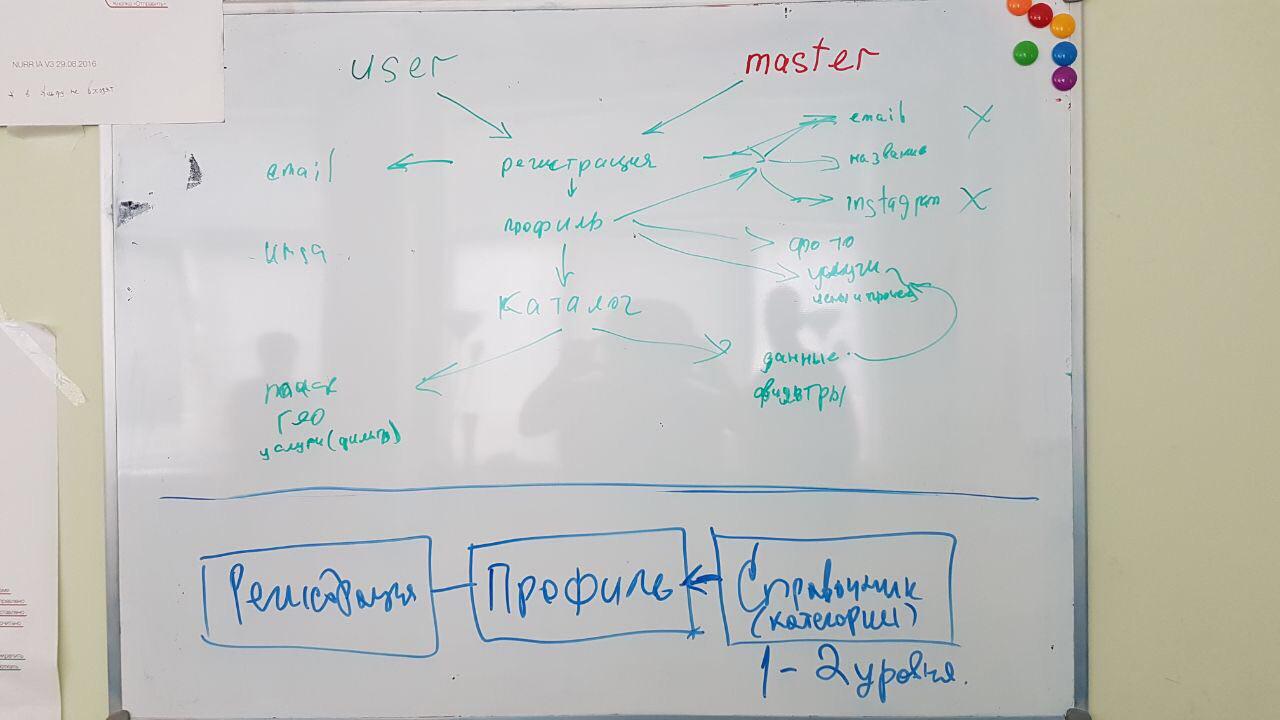 Кнопка «Отправить»
NURR IA V3 29.08.2016
user
master
email
регистрация
email X
название
instagram X
имя
профиль
фото
услуги
цены и прочее
каталог
данные
фильтры
поиск
гео
услуги (фильтр)
Регистрация
Профиль
Справочник
(категории)
1 - 2 уровня.